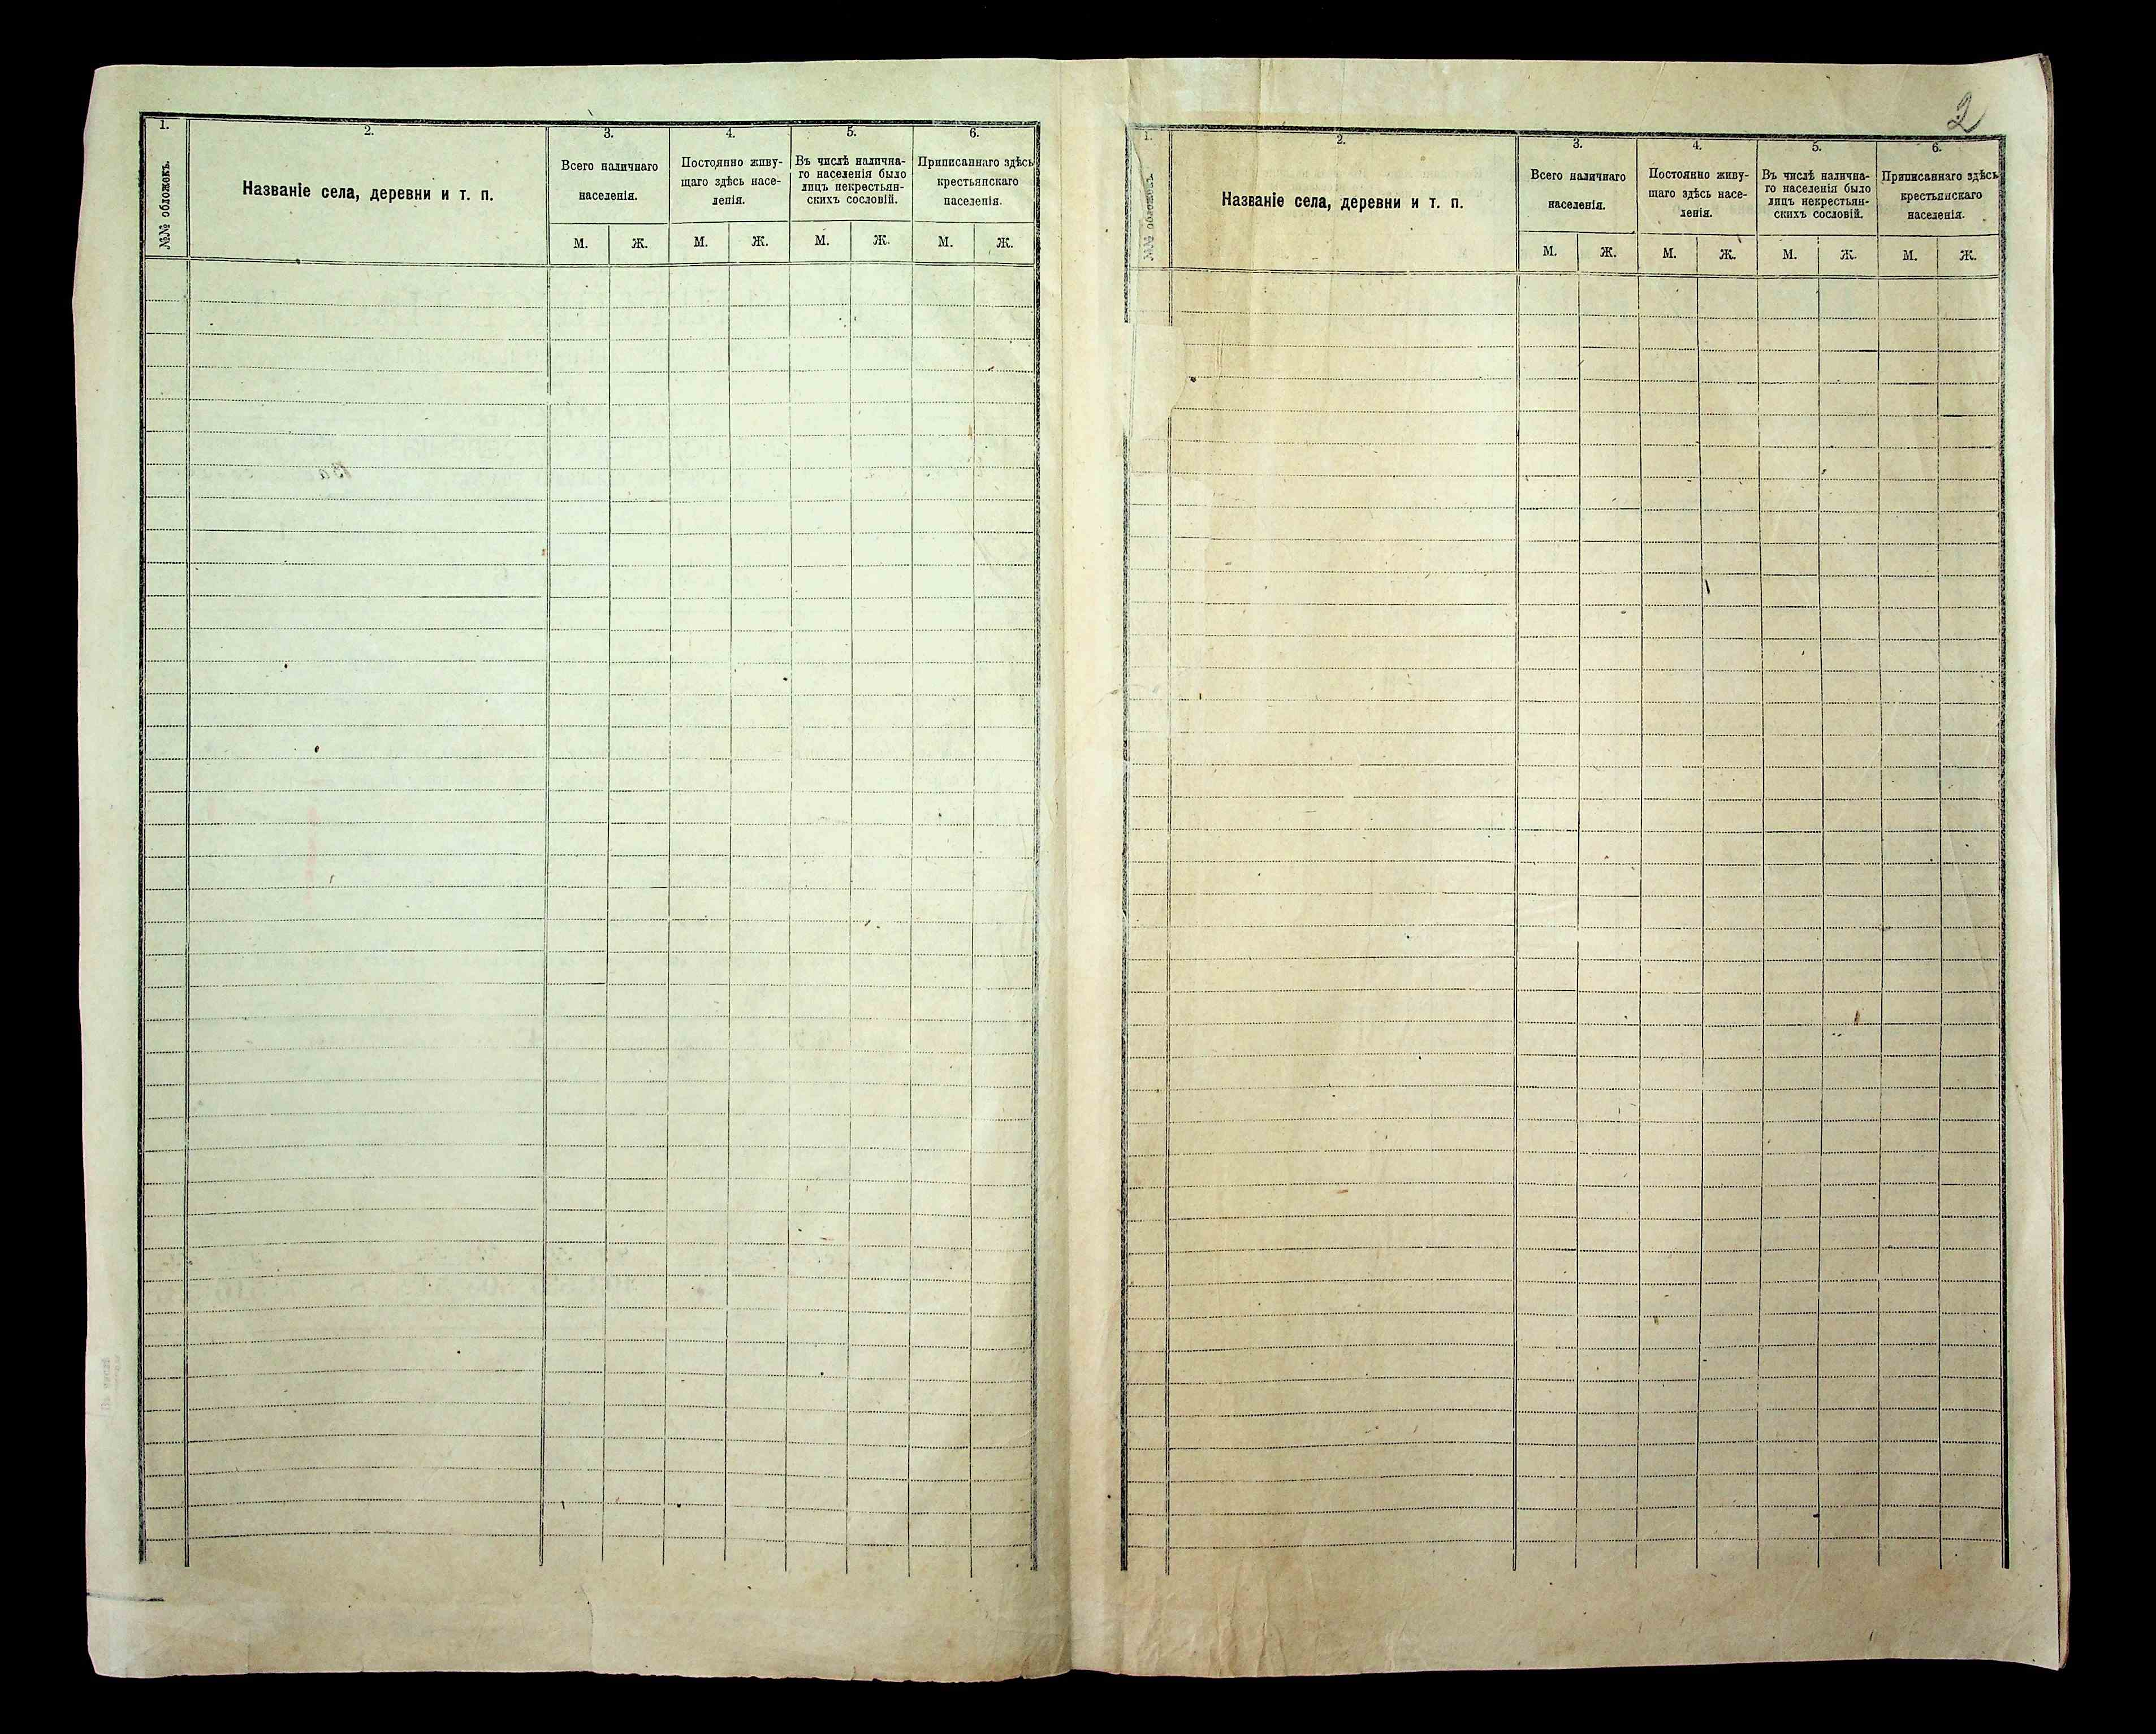 1.
2.
3.
4.
5.
6.
№№ обложекъ.
Названіе села, деревни и т. п.
Всего наличнаго
населенія.
Постоянно живу-
щаго здѣсь насе-
ленія.
Въ числѣ налична-
го населенія было
лицъ некрестьян-
скихъ сословій.
Приписаннаго здѣсь
крестьянскаго
населенія.
М. Ж. М. Ж. М. Ж. М. Ж.
2
1.
2.
3.
4.
5.
6.
№№ обложекъ.
Названіе села, деревни и т. п.
Всего наличнаго
населенія.
Постоянно живу-
щаго здѣсь насе-
ленія.
Въ числѣ налична-
го населенія было
лицъ некрестьян-
скихъ сословій.
Приписаннаго здѣсь
крестьянскаго
населенія.
М. Ж. М. Ж. М. Ж. М. Ж.